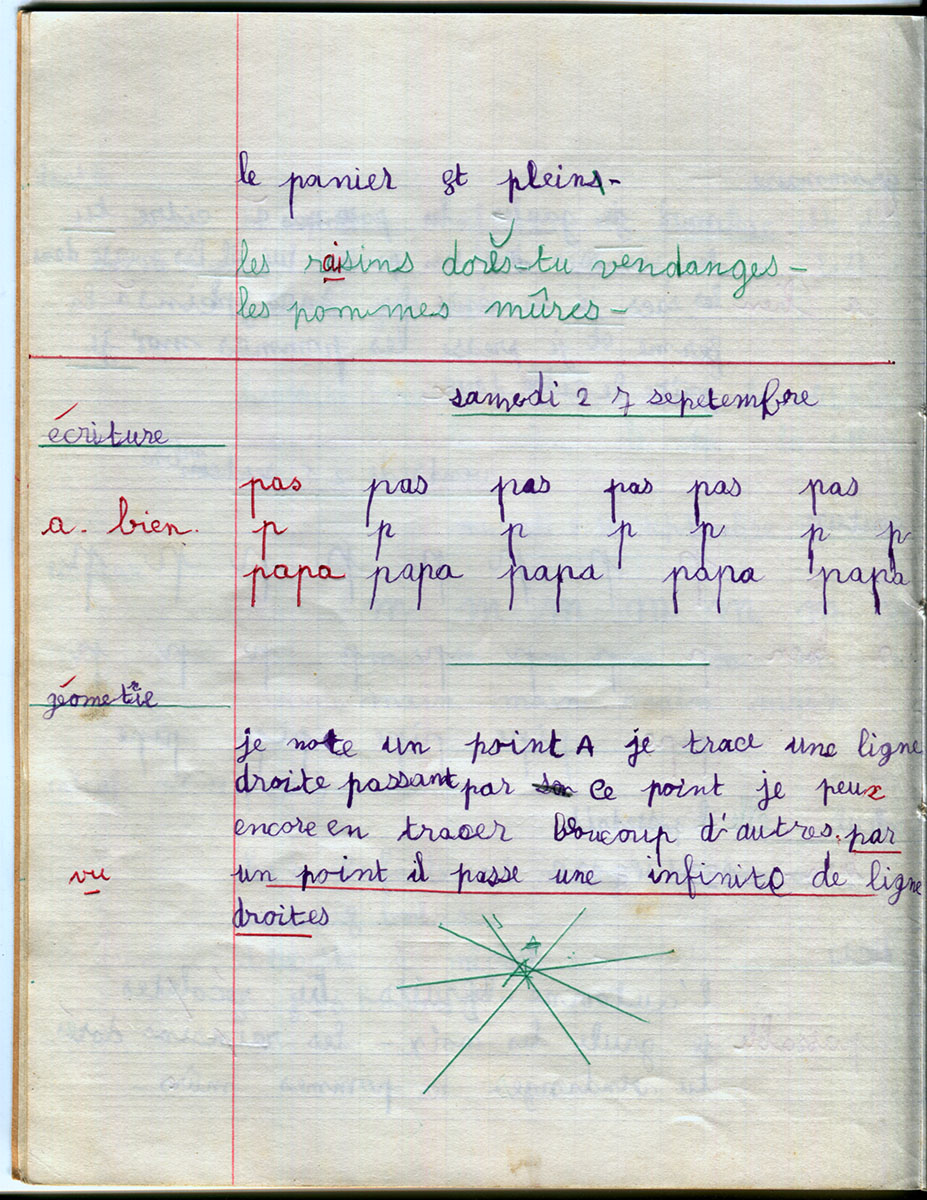 le panier est pleins-
les raisins dorés-tu vendanges-
les pommes mûres-
samedi 27 sepetembre
écriture
pas pas pas pas pas pas
a. bien. p p p p p p p
papa papa papa papa papa
géometrie
je note un point A je trace une ligne
droite passant par ce point je peux
encore en tracer beoucoup d'autres. par
vu un point il passe une infinité de ligne
droites
A